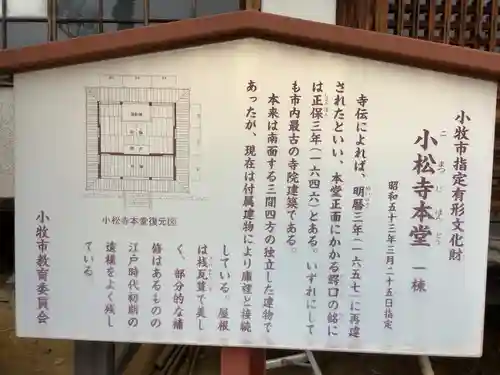 小牧市指定有形文化財
小松寺本堂 一棟
昭和五十三年三月二十五日指定
寺伝によれば、明暦三年(一六五七)に再建
されたといい、本堂正面にかかる鰐口の銘に
は正保三年(一六四六)とある。いずれにして
も市内最古の寺院建築である。
本来は南面する三間四方の独立した建物で
あったが、現在は付属建物により庫裡と接続
している。屋根
は桟瓦葺で美し
く、部分的な補
修はあるものの
江戸時代初期の
遺構をよく残し
ている。
小松寺本堂復元図
小牧市教育委員会